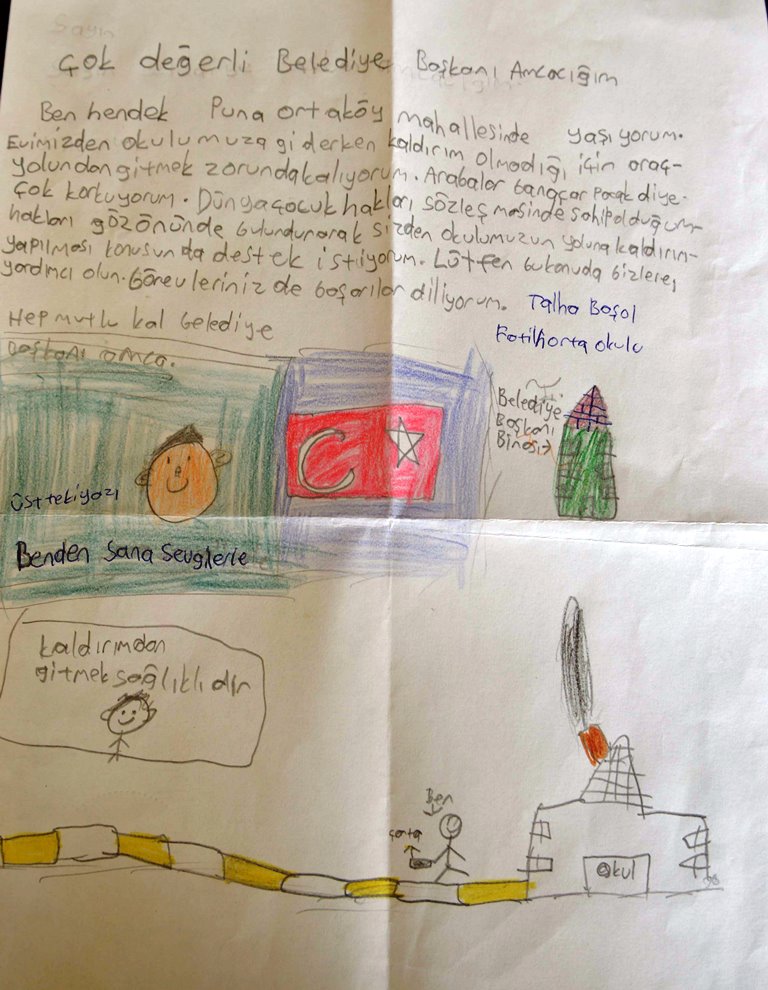 Sayın
Çok değerli Belediye Başkanı Amcacığım
Ben hendek Puna ortaköy mahallesinde yaşıyorum.
Evimizden okulumuza giderken kaldırım olmadığı için araç-
yolundan gitmek zorunda kalıyorum. Arabalar bana çarpacak diye
çok korkuyorum. Dünya çocuk hakları sözleşmesinde sahip olduğum
hakları göz önünde bulundurarak sizden okulumuzun yoluna kaldırım
yapılması konusunda destek istiyorum. Lütfen bu konuda bizlere
yardımcı olun. Görevlerinizde başarılar diliyorum. Talha Başol
Hep mutlu kal belediye Fatih orta okulu
başkanı amca.
Belediye
Başkanı
Binası
Üstteki yazı
Benden Sana Sevgilerle
kaldırımdan
gitmek sağlıklıdır
Ben
çanta
Okul